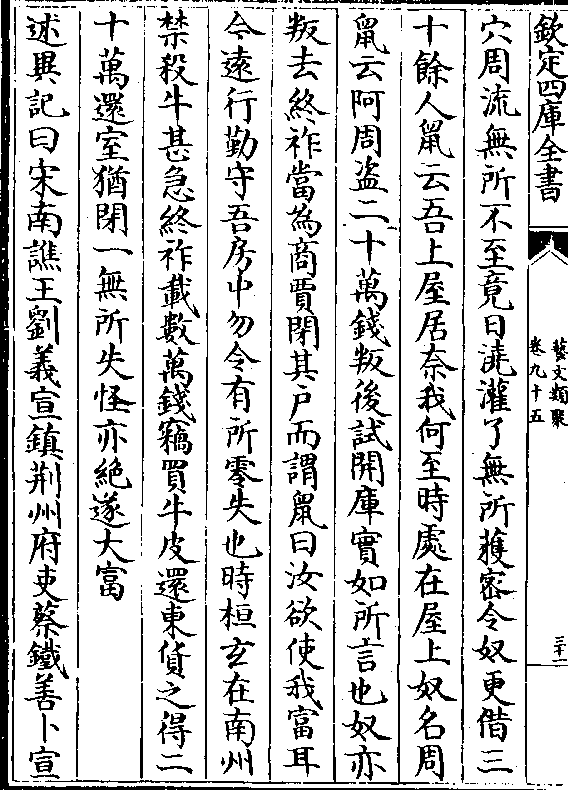 欽定四庫全書
藝文類聚
卷九十五
三十一
穴周流無所不至竟日澆灌了無所䕶密令奴更借三
十餘人䑕云吾上屋居奈我何至時處在屋上奴名周
䑕云阿周盗二十萬錢叛後試開庫實如所言也奴亦
叛去終祚當為商賈閉其户而謂䑕曰汝欲使我富耳
今逺行勤守吾房中勿令有所零失也時桓𤣥在南州
禁殺牛甚急終祚載數萬錢竊買牛皮還東貨之得二
十萬還室猶閉一無所失怪亦絶遂大富
述異記曰宋南譙王劉義宣鎮荆州府吏蔡鐵善卜宣